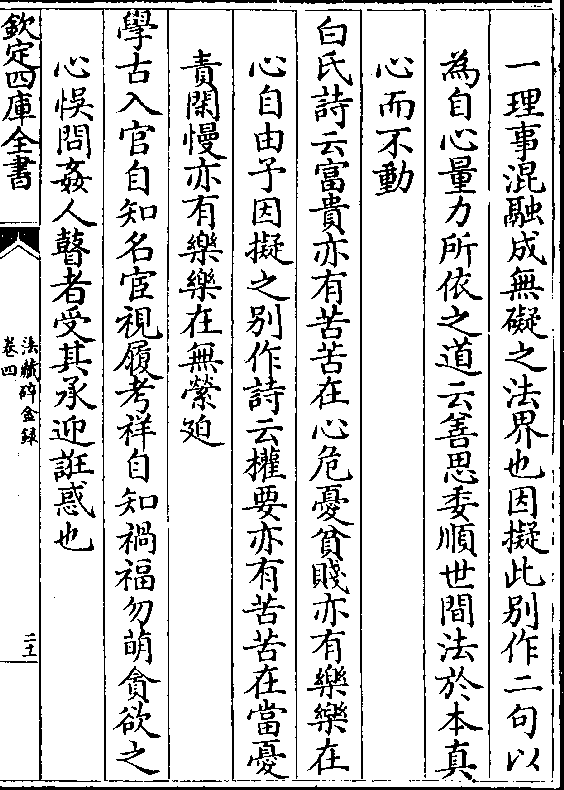 一理事混融成無礙之法界也因擬此别作二句以
為自心量力所依之道云善思委順世間法於本真
心而不動
白氏詩云富貴亦有苦苦在心危憂貧賤亦有樂樂在
心自由予因擬之别作詩云權要亦有苦苦在當憂
責閑慢亦有樂樂在無縈廹
學古入官自知名宦視履考祥自知禍福勿萌貪欲之
心悞問姦人瞽者受其承迎誑惑也
欽定四庫全書
法藏碎金録
卷四
二十